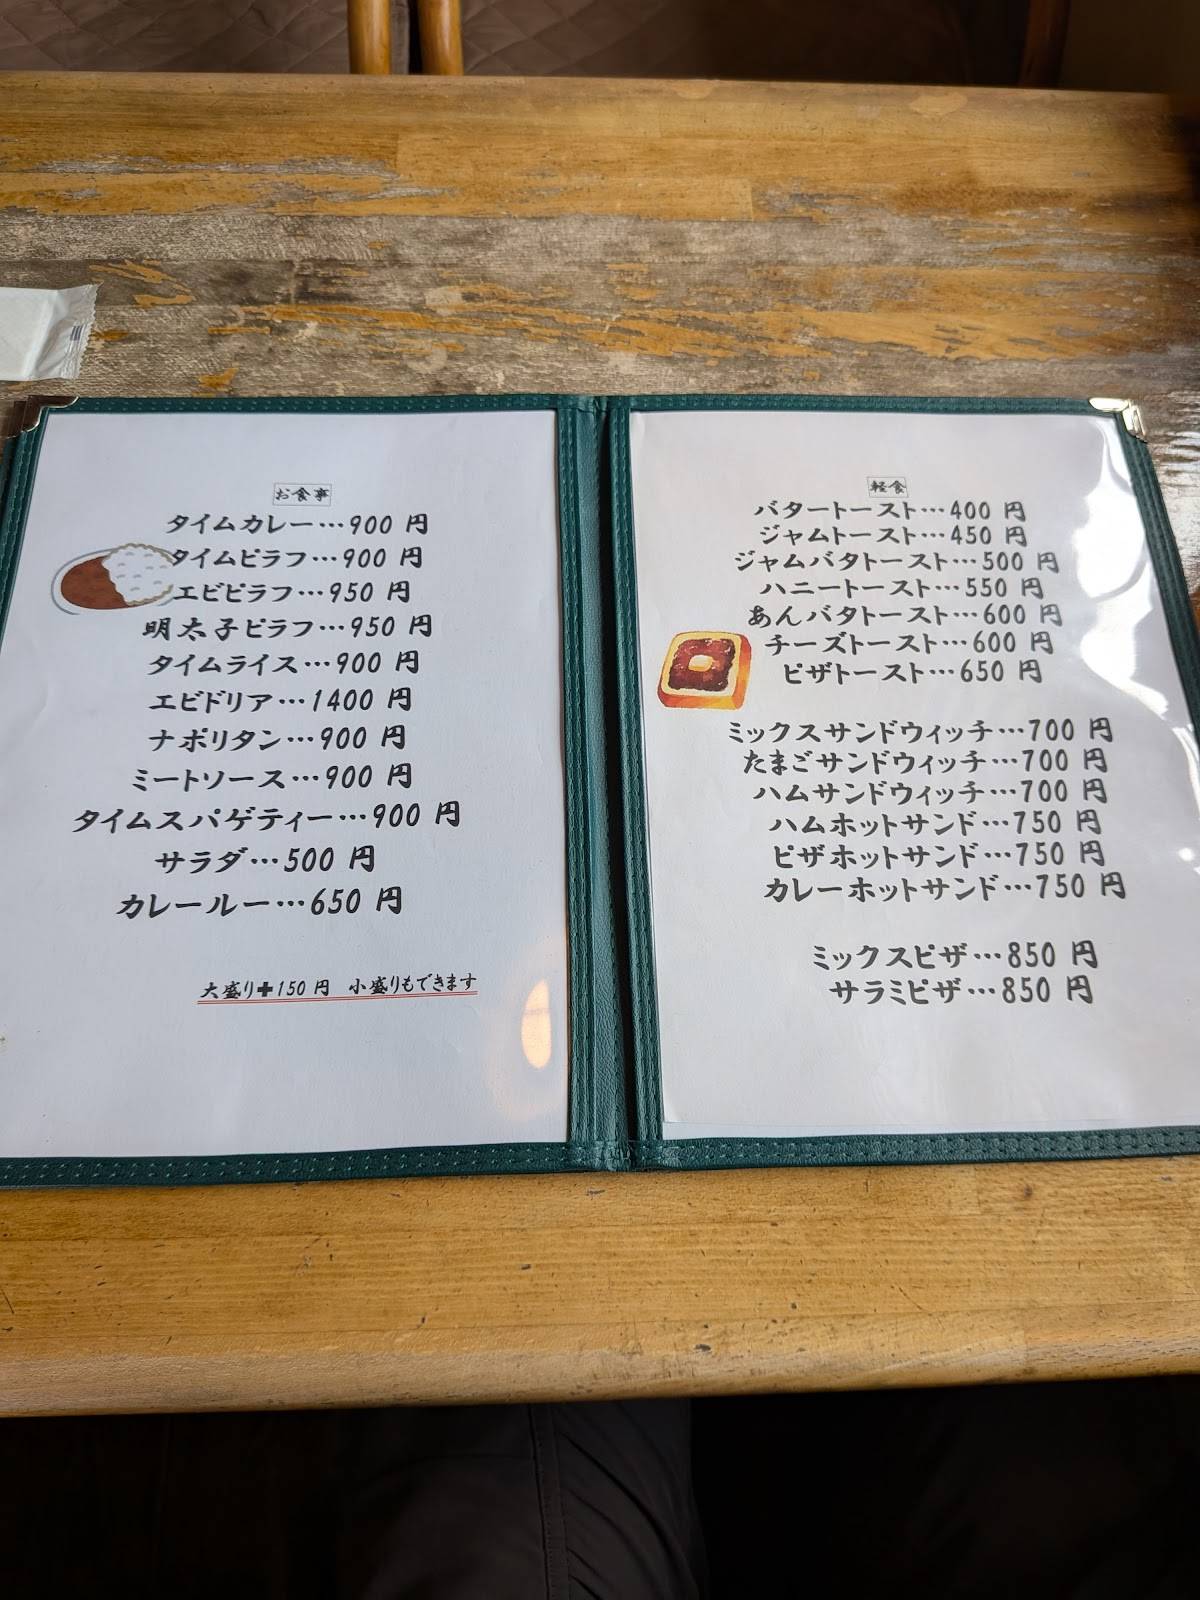 お食事
タイムカレー…900 円
タイムピラフ…900 円
エビピラフ…950 円
明太子ピラフ…950 円
タイムライス…900 円
エビドリア…1400 円
ナポリタン…900 円
ミートソース…900 円
タイムスパゲティー…900 円
サラダ…500 円
カレールー…650 円
大盛り✚150 円　小盛りもできます
軽食
バタートースト…400 円
ジャムトースト…450 円
ジャムバタトースト…500 円
ハニートースト…550 円
あんバタトースト…600 円
チーズトースト…600 円
ピザトースト…650 円
ミックスサンドウィッチ…700 円
たまごサンドウィッチ…700 円
ハムサンドウィッチ…700 円
ハムホットサンド…750 円
ピザホットサンド…750 円
カレーホットサンド…750 円
ミックスピザ…850 円
サラミピザ…850 円